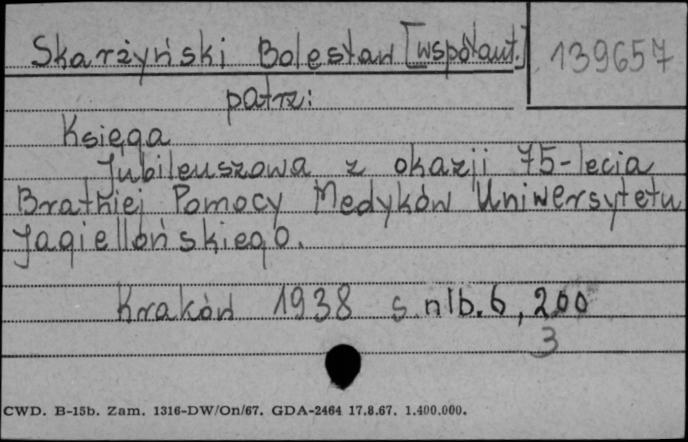 Skarżyński Bolesław [współaut.] 139657
patrz:
Księga
Jubileuszowa z okazji 75-lecia
Bratniej Pomocy Medyków Uniwersytetu
Jagiellońskiego.
Kraków 1938 s. nlb. 6, 200
3
CWD. B-15b. Zam. 1316-DW/On/67. GDA-2464 17.8.67. 1.400.000.